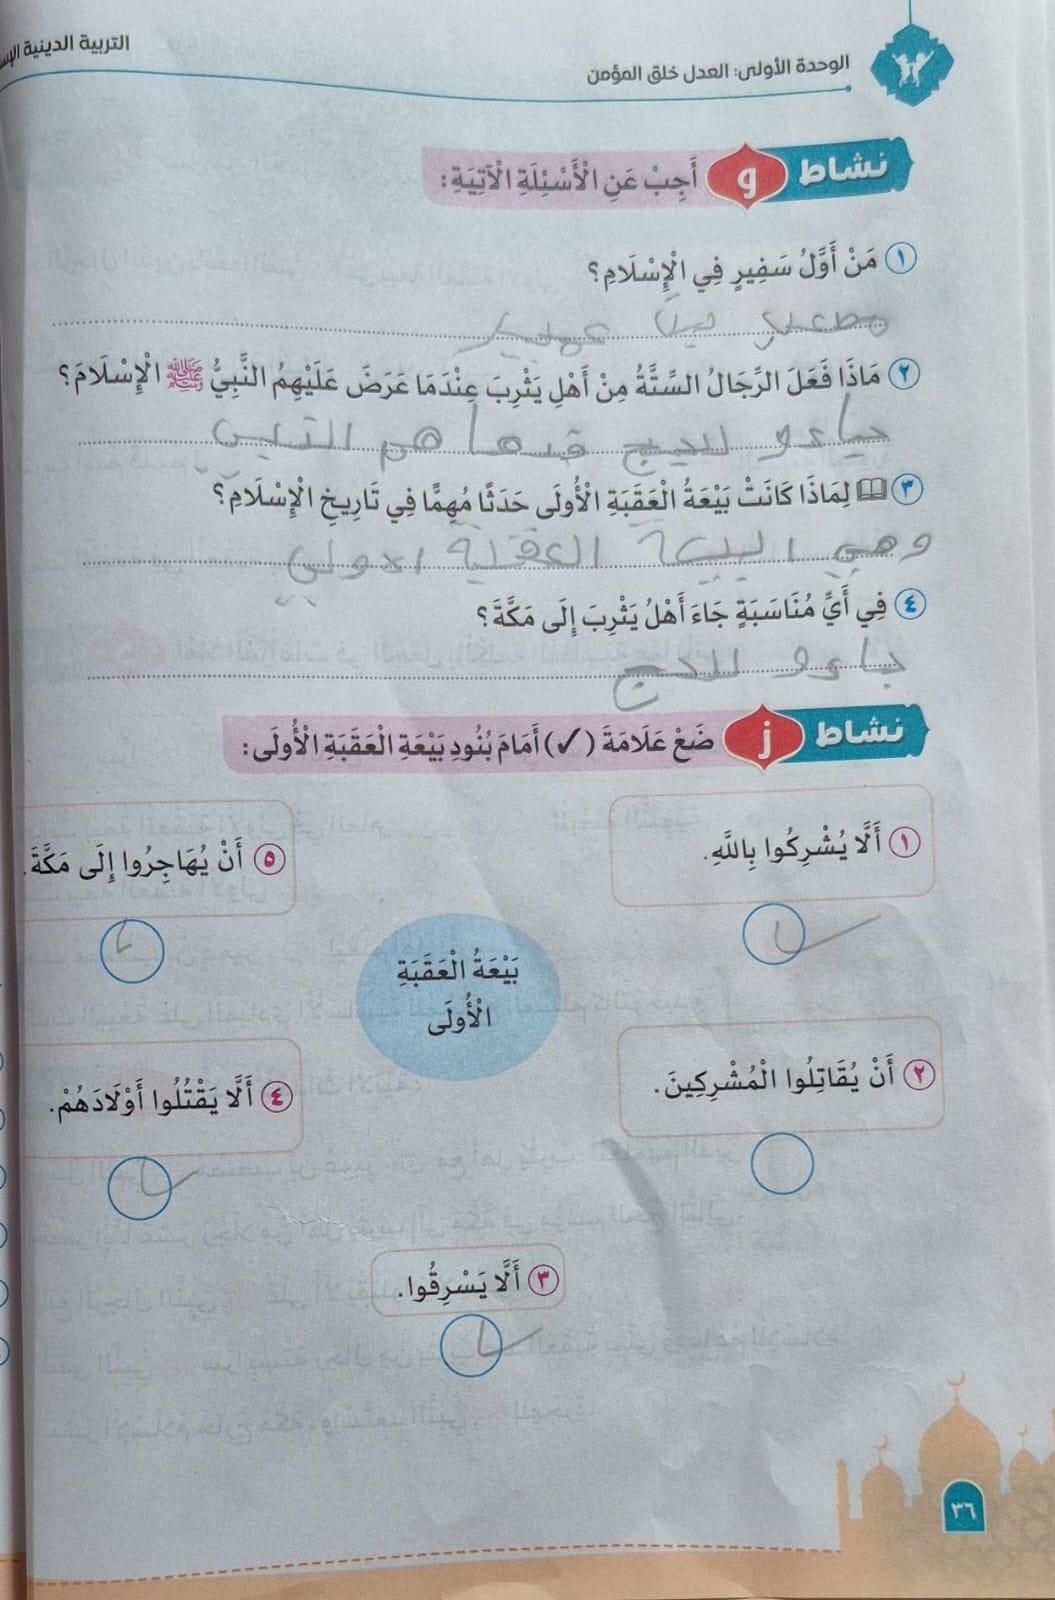 التربية الدينية
الوحدة الأولى: العدل خلق المؤمن
نشاط و أَجِبْ عَنِ الْأَسْئِلَةِ الْآتِيَةِ:
١ مَنْ أَوَّلُ سَفِيرٍ فِي الْإِسْلَامِ؟
عمير
٢ مَاذَا فَعَلَ الرِّجَالُ السِّتَّةُ مِنْ أَهْلِ يَثْرِبَ عِنْدَمَا عَرَضَ عَلَيْهِمُ النَّبِيُّ ﷺ الْإِسْلَامَ؟
للحج
٣ لِمَاذَا كَانَتْ بَيْعَةُ الْعَقَبَةِ الْأُولَى حَدَثًا مُهِمًّا فِي تَارِيخِ الْإِسْلَامِ؟
وهي العقبة الاولى
٤ فِي أَيِّ مُنَاسَبَةٍ جَاءَ أَهْلُ يَثْرِبَ إِلَى مَكَّةَ؟
جاءو للحج
نشاط ز ضَعْ عَلَامَةَ (✓) أَمَامَ بُنُودِ بَيْعَةِ الْعَقَبَةِ الْأُولَى:
١ أَلَّا يُشْرِكُوا بِاللَّهِ.
٥ أَنْ يُهَاجِرُوا إِلَى مَكَّةَ.
بَيْعَةُ الْعَقَبَةِ
الْأُولَى
٢ أَنْ يُقَاتِلُوا الْمُشْرِكِينَ.
٤ أَلَّا يَقْتُلُوا أَوْلَادَهُمْ.
٣ أَلَّا يَسْرِقُوا.
٣٦